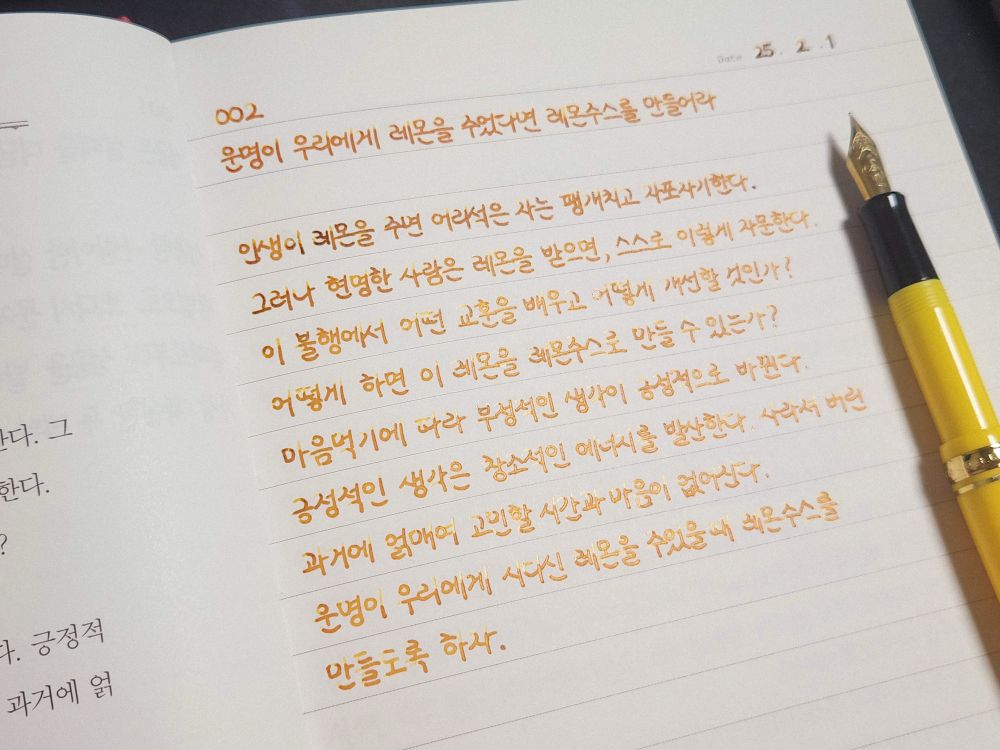 Date 25. 2. 1
002
운명이 우리에게 레몬을 주었다면 레몬주스를 만들어라
인생이 레몬을 주면 어리석은 자는 팽개치고 자포자기한다.
그러나 현명한 사람은 레몬을 받으면, 스스로 이렇게 자문한다.
이 불행에서 어떤 교훈을 배우고 어떻게 개선할 것인가?
어떻게 하면 이 레몬을 레몬주스로 만들 수 있는가?
마음먹기에 따라 부정적인 생각이 긍정적으로 바뀐다.
긍정적인 생각은 창조적인 에너지를 발산한다. 사라져 버린
과거에 얽매여 고민할 시간과 마음이 없어진다.
운명이 우리에게 시다신 레몬을 주었을 때 레몬주스를
만들도록 하자.
한다. 그
한다.
?
다. 긍정적
과거에 얽